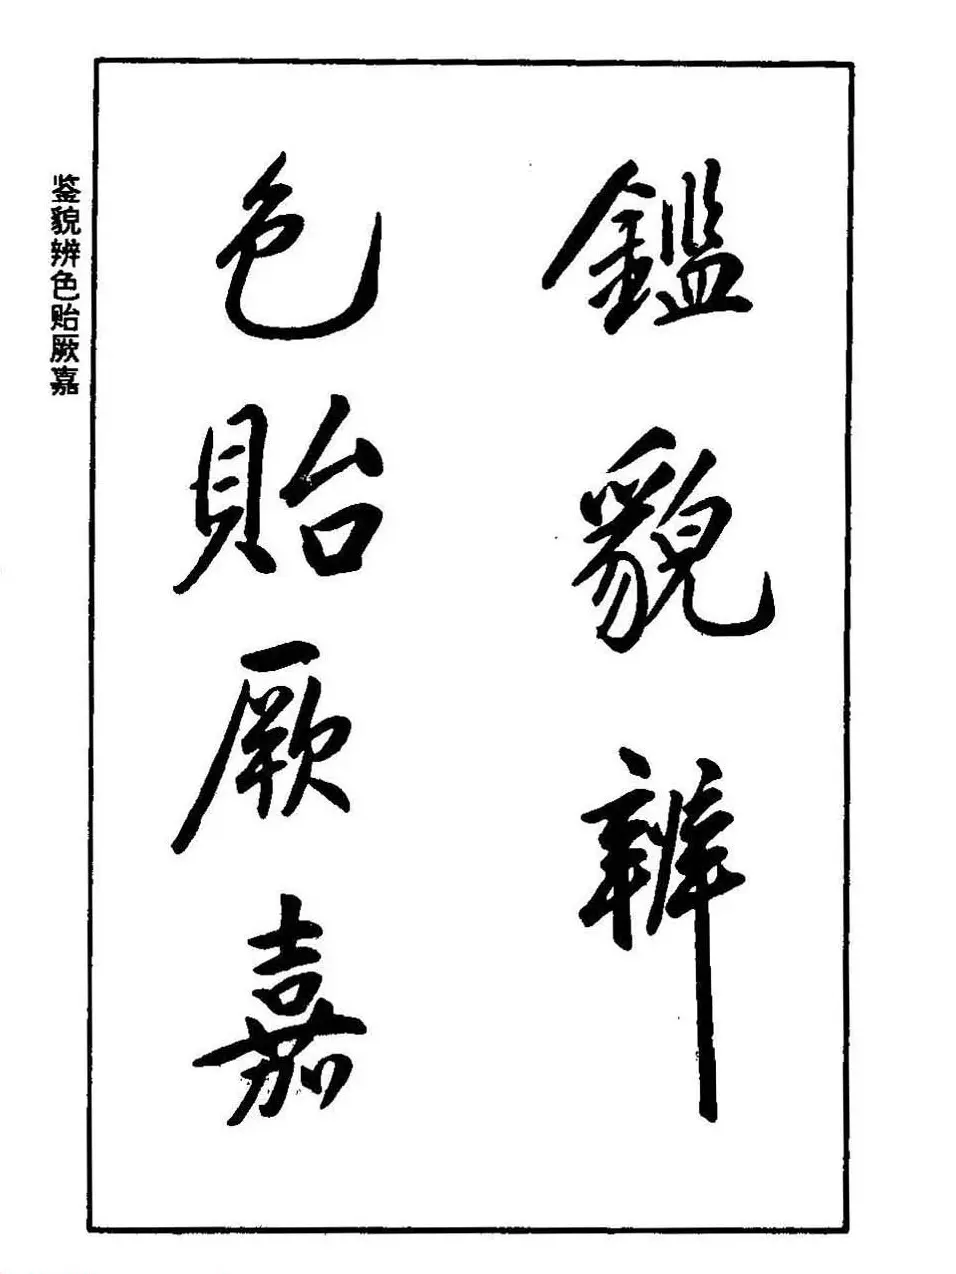 鑑貌辨
色貽厥嘉
鉴貌辨色贻厥嘉